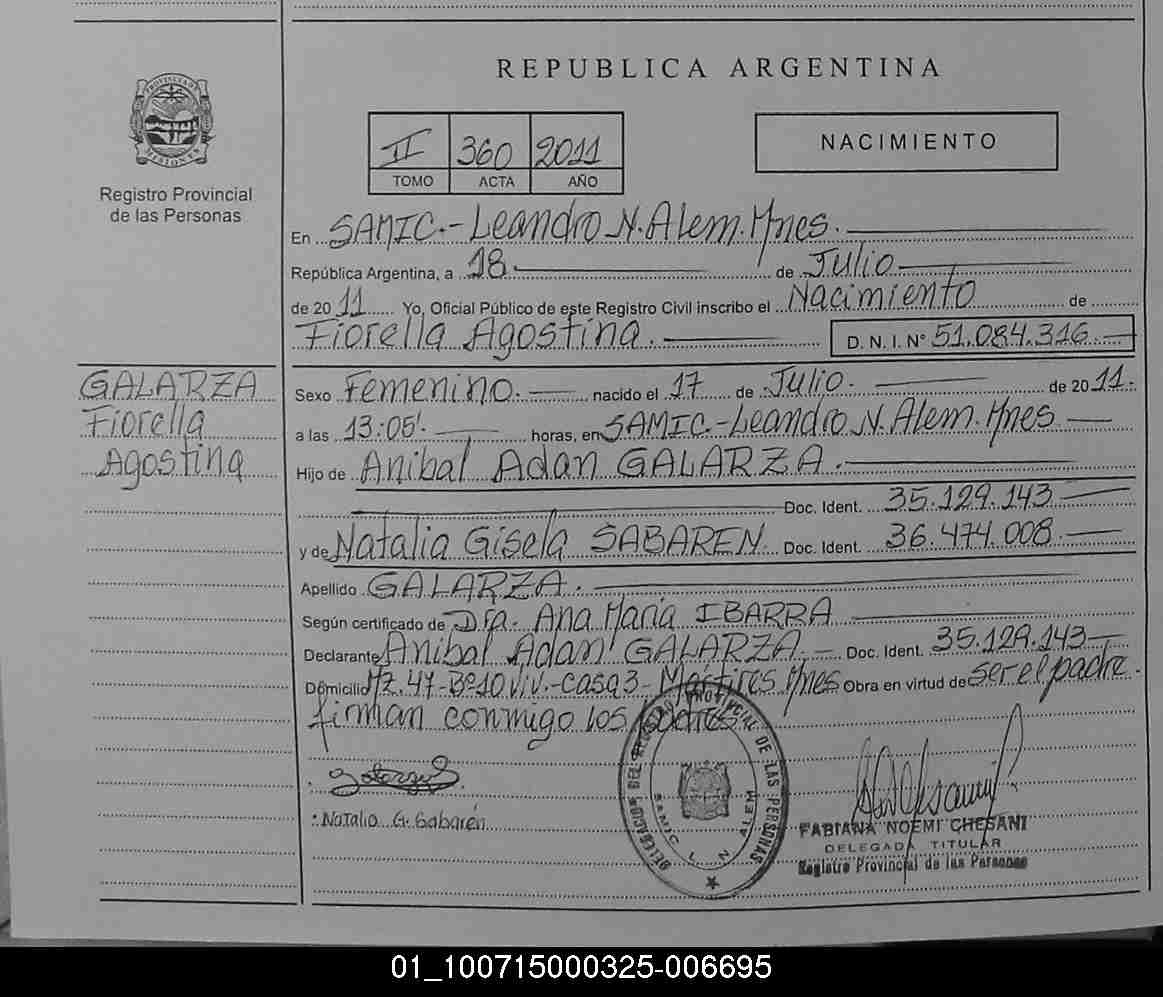 REPUBLICA ARGENTINA
PROVINCIA DE MISIONES
Registro Provincial
de las Personas
II 360 2011
TOMO ACTA AÑO
NACIMIENTO
En SAMIC.-Leandro N. Alem. Mnes.
República Argentina, a 18 de Julio
de 2011 Yo, Oficial Público de este Registro Civil inscribo el Nacimiento de
Fiorella Agostina. D. N. I. N° 51.084.316
GALARZA
Fiorella
Agostina
Sexo Femenino. nacido el 17 de Julio. de 2011.
a las 13:05'. horas, en SAMIC.-Leandro N. Alem. Mnes
Hijo de Anibal Adan GALARZA.
Doc. Ident. 35.129.143
y de Natalia Gisela SABAREN Doc. Ident. 36.474.008
Apellido GALARZA.
Según certificado de Dra. Ana María IBARRA
Declarante Anibal Adan GALARZA. Doc. Ident. 35.129.143
Domicilio Mz. 47-B°10 viv.-casa 3- Mártires Mnes Obra en virtud de ser el padre.
firman conmigo los padres
Natalia G. Sabarén
DELEGACION DEL REGISTRO PROVINCIAL DE LAS PERSONAS
SAMIC L. N. ALEM
FABIANA NOEMI CHESANI
DELEGADA TITULAR
Registro Provincial de las Personas
01_100715000325-006695